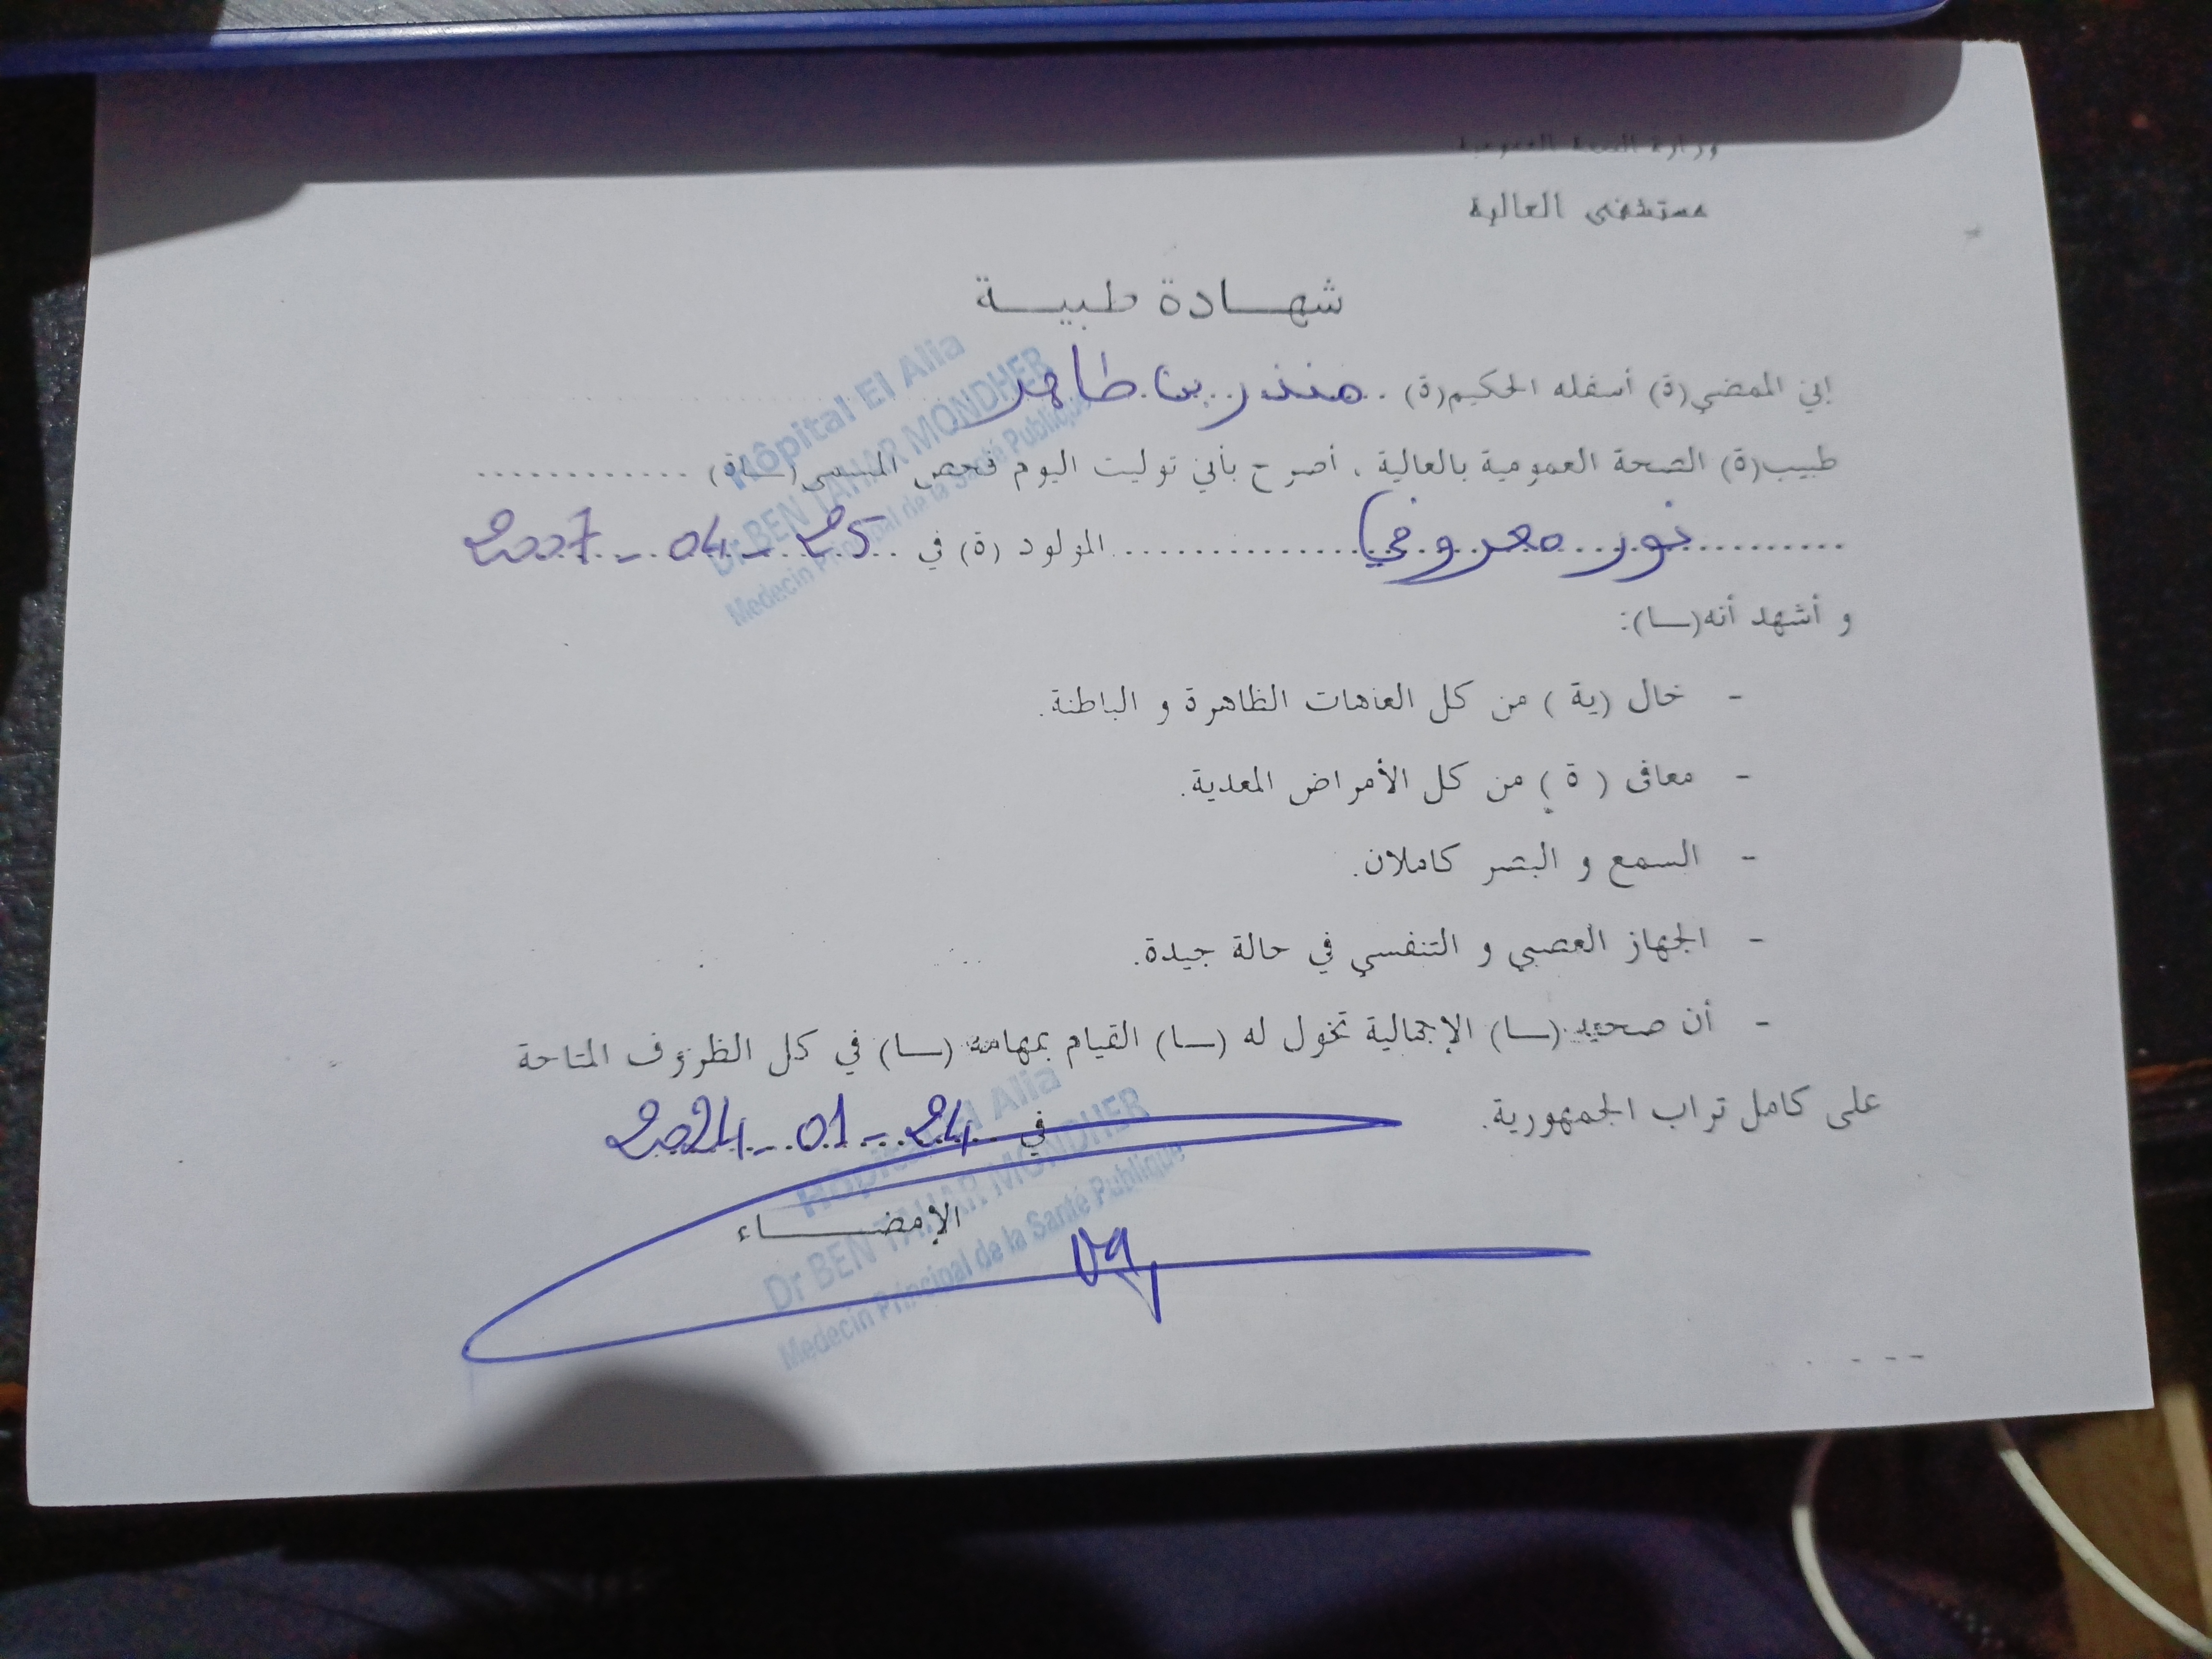 وزارة الصحة العمومية
مستشفى العالية
شهـــادة طبيـــة
إني الممضي(ة) أسفله الحكيم(ة) منذر بن طاهر
طبيب(ة) الصحة العمومية بالعالية ، أصرح بأني توليت اليوم فحص المسمى(ــاة) ............
......... نور معروفي ............... المولود (ة) في 25 - 04 - 2007
و أشهد أنه(ــا):
- خال (ية ) من كل العاهات الظاهرة و الباطنة.
- معافى ( ة ) من كل الأمراض المعدية.
- السمع و البصر كاملان.
- الجهاز العصبي و التنفسي في حالة جيدة.
- أن صحته (ــا) الإجمالية تخول له (ــا) القيام بمهامه (ــا) في كل الظروف المتاحة
على كامل تراب الجمهورية.
في 24 - 01 - 2024
الإمضـــــاء
Hôpital El Alia
Dr BEN TAHAR MONDHER
Medecin Principal de la Santé Publique
Hôpital El Alia
Dr BEN TAHAR MONDHER
Medecin Principal de la Santé Publique